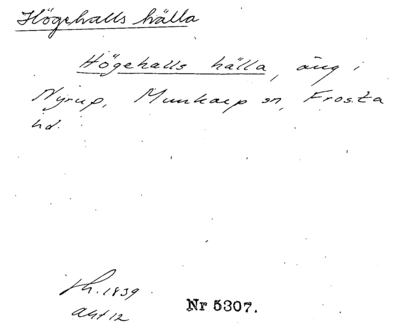 Högehalls hälla
Högehalls hälla, äng i
Nyrup, Munkarp sn, Frosta
hd.
sk. 1839
akt 12
Nr 5307.